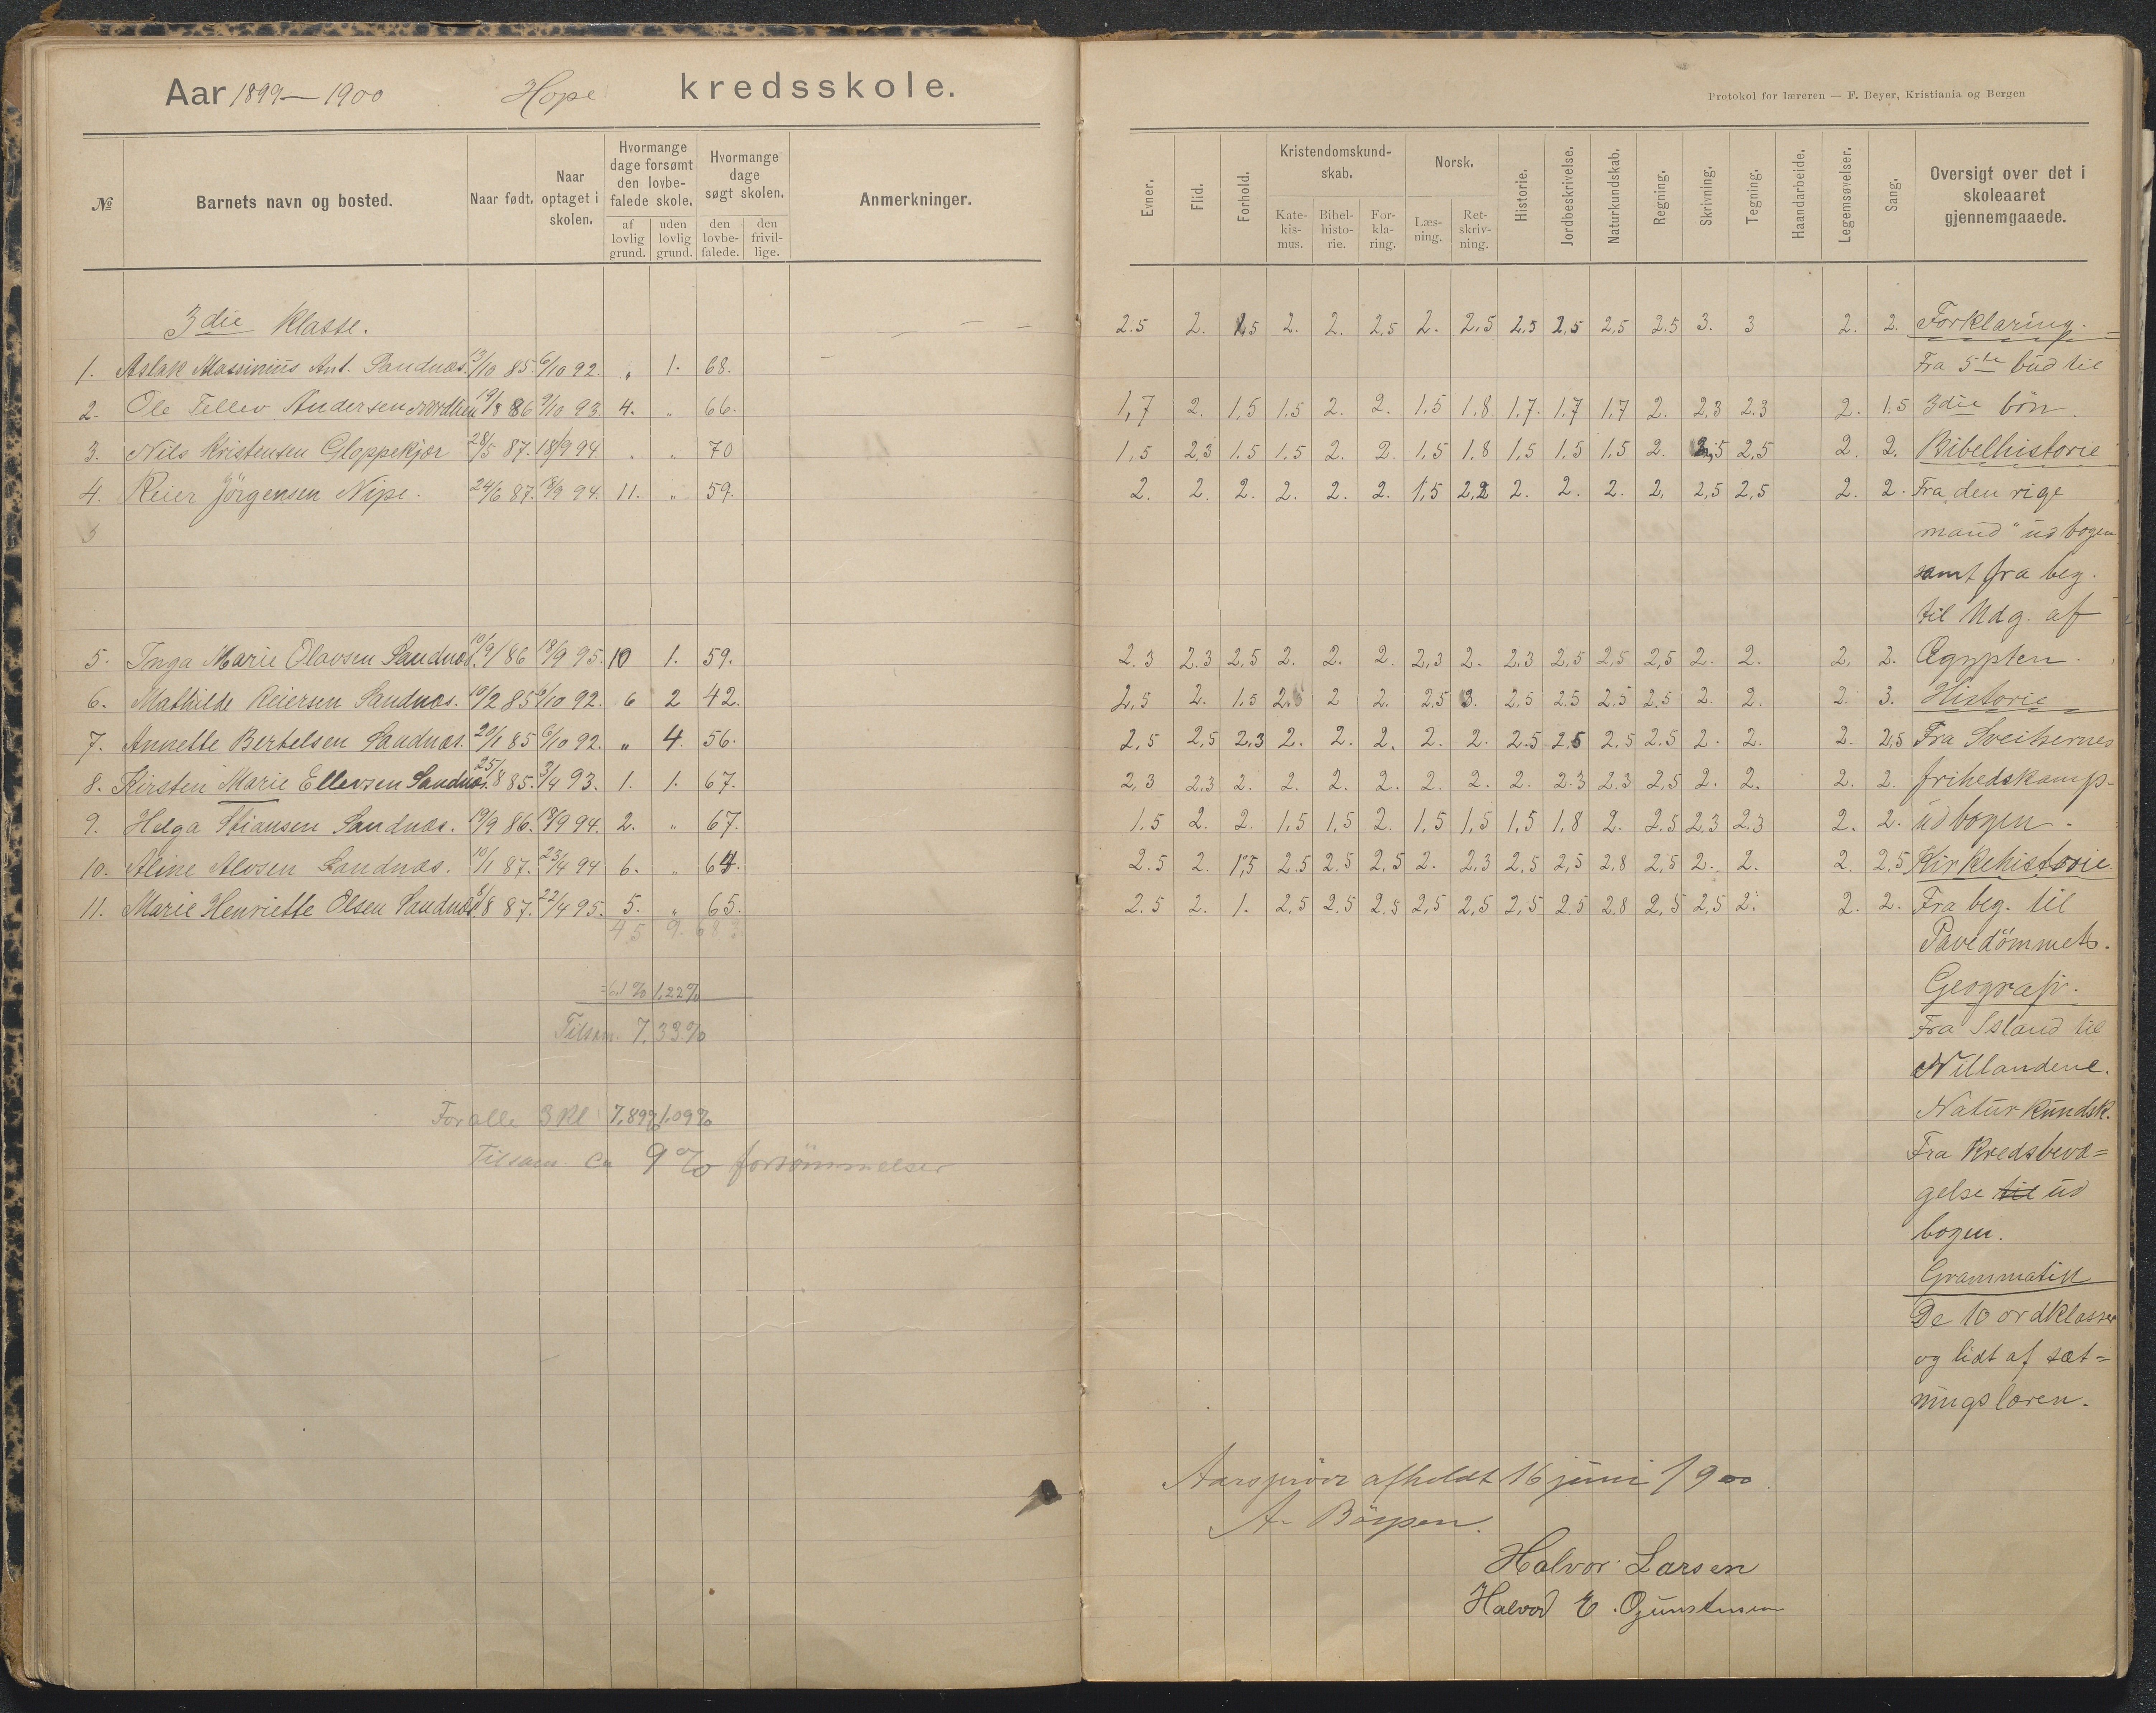 Aar 1899—1900 Hope kredsskole.
Protokol for læreren — F. Beyer, Kristiania og Bergen
№ | Barnets navn og bosted. | Naar født. | Naar optaget i skolen. | Hvormange dage forsømt den lovbefalede skole. af lovlig grund. | uden lovlig grund. | Hvormange dage søgt skolen. den lovbefalede. | den frivillige. | Anmerkninger. | Evner. | Flid. | Forhold. | Kristendomskundskab. Katekismus. | Bibelhistorie. | Forklaring. | Norsk. Læsning. | Retskrivning. | Historie. | Jordbeskrivelse. | Naturkundskab. | Regning. | Skrivning. | Tegning. | Haandarbeide. | Legemsøvelser. | Sang. | Oversigt over det i skoleaaret gjennemgaaede.
3die Klasse. 2.5 2. 1.5 2. 2. 2,5 2. 2,5 2,5 2,5 2,5 2.5 3. 3 2. 2. Forklaring.
1. Aslak Massinius Ant. Sandnæs. 13/10 85. 6/10 92. „ 1. 68. Fra 5te bud til
2. Ole Tellev Andersen Nordlien 19/8 86 9/10 93 4. „ 66. 1,7 2. 1,5 1.5 2. 2. 1.5 1.8 1.7. 1.7 1,7 2. 2,3 2.3 2. 1.5 3die bön.
3. Nils Kristensen Gloppekjær 28/5 87. 18/9 94. „ „ 70 1,5 2,3 1.5 1,5 2. 2. 1,5 1.8 1,5 1.5 1.5 2. 2,5 2,5 2. 2. Bibelhistorie
4. Reier Jörgensen Nipe. 24/6 87. 18/9 94. 11. „ 59. 2. 2. 2. 2. 2. 2. 1,5 2,2 2. 2. 2. 2. 2,5 2,5 2. 2. Fra „den rige
5 mand" ud bogen
samt fra beg.
til Udg. af
5. Inga Marie Olavsen Sandnæs. 10/9 86 18/9 95. 10 1. 59. 2.3 2.3 2,5 2. 2. 2. 2,3 2. 2.3 2,5 2,5 2,5 2. 2. 2. 2. Ægypten.
6. Mathilde Reiersen Sandnæs. 10/2 85 6/10 92. 6 2 42. 2,5 2. 1.5 2. 2 2. 2.5 3. 2.5 2.5 2.5 2.5 2. 2. 2. 3. Historie
7. Annette Bertelsen Sandnæs. 20/1 85 6/10 92. „ 4. 56. 2,5 2,5 2,3 2. 2. 2. 2. 2. 2.5 2.5 2.5 2.5 2. 2. 2. 2,5 Fra Sveitsernes
8. Kirsten Marie Ellevsen Sandnæs. 25/8 85. 3/4 93. 1. 1. 67. 2,3 2.3 2. 2. 2. 2. 2. 2. 2. 2.3 2.3 2,5 2. 2. 2. 2. frihedskamp-
9. Helga Stiansen Sandnæs. 19/9 86. 18/9 94. 2. „ 67. 1.5 2. 2. 1,5 1,5 2. 1,5 1,5 1,5 1,8 2. 2.5 2,3 2,3 2. 2. ud bogen.
10. Aline Alvsen Sandnæs. 10/1 87. 23/4 94 6. „ 64. 2.5 2. 1,5 2.5 2.5 2,5 2. 2,3 2,5 2,5 2,8 2,5 2. 2. 2. 2,5 Kirkehistorie
11. Marie Henriette Olsen Sandnæs. 8/8 87. 22/4 95. 5. „ 65. 2.5 2. 1. 2,5 2.5 2,5 2,5 2,5 2,5 2.5 2.8 2,5 2,5 2. 2. 2. Fra beg. til
45 9. 683 Pavedömmets.
=6.1 % 1,22% Geografi.
Tilsam. 7,33% Fra Island til
Nillandene.
For alle 3 Kl 7,89% 1.09% Naturkundsk.
Tilsam. ca 9% forsömmelser Fra Kredsbevæ=
gelse til ud
bogen.
Grammatik
De 10 ordklasser
og lidt af sæt=
ningslæren.
Aarspröve afholdt 16 juni 1900.
Halvor Larsen
Halvor E.